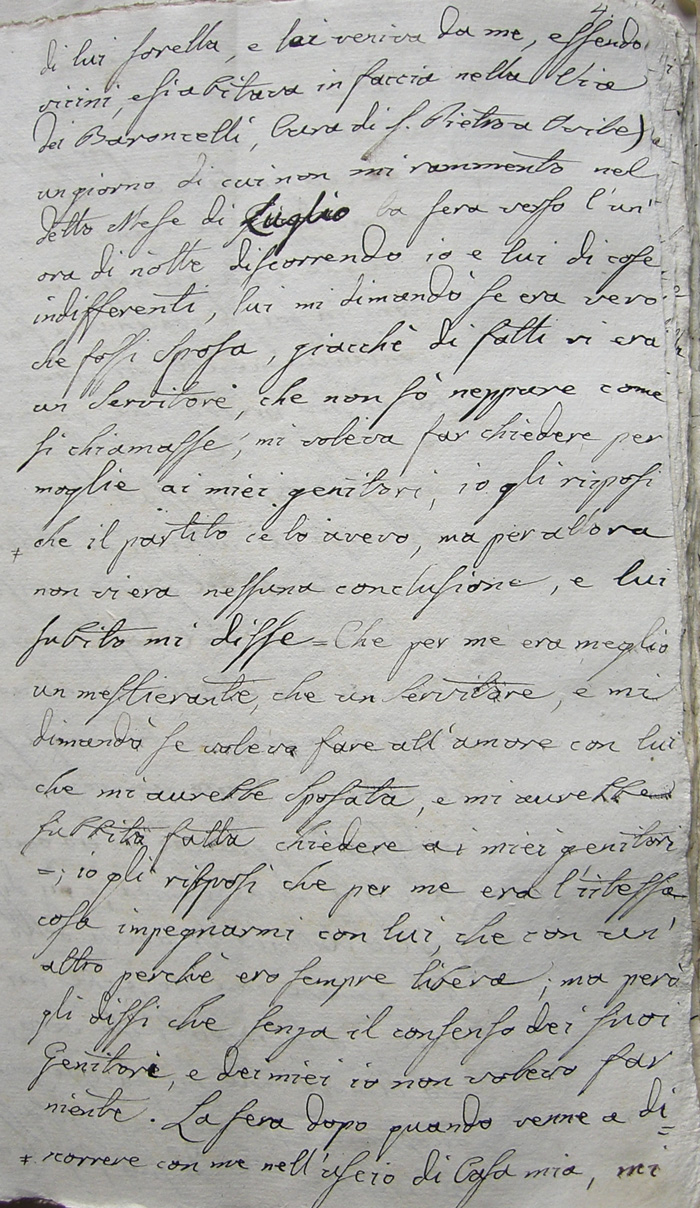 di lui sorella, e lei veniva da me, essendo
vicini, e si abitava in faccia nella Via
dei Baroncelli, Cura di S. Pietro a Ovile)
un giorno di cui non mi rammento nel
detto Mese di Luglio la sera verso l'un'
ora di notte discorrendo io e lui di cose
indifferenti, lui mi dimandò se era vero
che fossi sposa, giacchè di fatti vi era
un Servitore, che non sò neppure come
si chiamasse, mi voleva far chiedere per
moglie ai miei genitori, io gli risposi
che il partito ce lo avevo, ma per allora
non vi era nessuna conclusione, e lui
subito mi disse = Che per me era meglio
un mestierante, che un Servitore, e mi
dimandò se voleva fare all'amore con lui
che mi aurebbe sposata, e mi aurebbe
subbito fatta chiedere ai miei genitori
=; io gli risposi che per me era l'istessa
cosa impegnarmi con lui, che con un'
altro perchè ero sempre libera; ma però
gli dissi che senza il consenso dei suoi
Genitori, e dei miei io non volevo far
niente. La sera dopo quando venne a di=
scorrere con me nell'uscio di Casa mia, mi